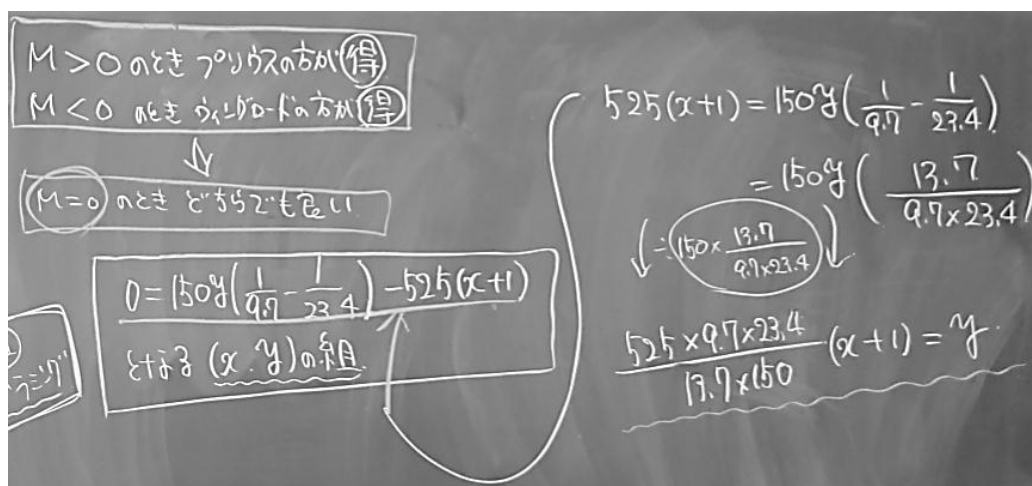 M>0のとき プリウスの方が得
M<0 のとき ウィングロードの方が得
M=0 のとき どちらでも良い
0=150y(1/9.7-1/23.4)-525(x+1)
となる (x.y)の組
ラミング
525(x+1)=150y(1/9.7-1/23.4)
=150y(13.7/9.7×23.4)
÷150×13.7/9.7×23.4
525×9.7×23.4/13.7×150 (x+1)=y.